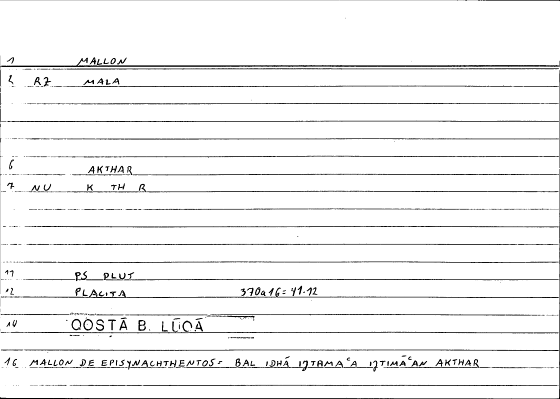 1 MALLON
2 RZ MALA
6 AKTHAR
7 NU K TH R
11 PS PLUT
12 PLACITA 370a16=41.12
14 QOSTĀ B. LŪQĀ
16 MALLON DE EPISYNACHTHENTOS= BAL IDHĀ IJTAMAʿA IJTIMĀʿAN AKTHAR